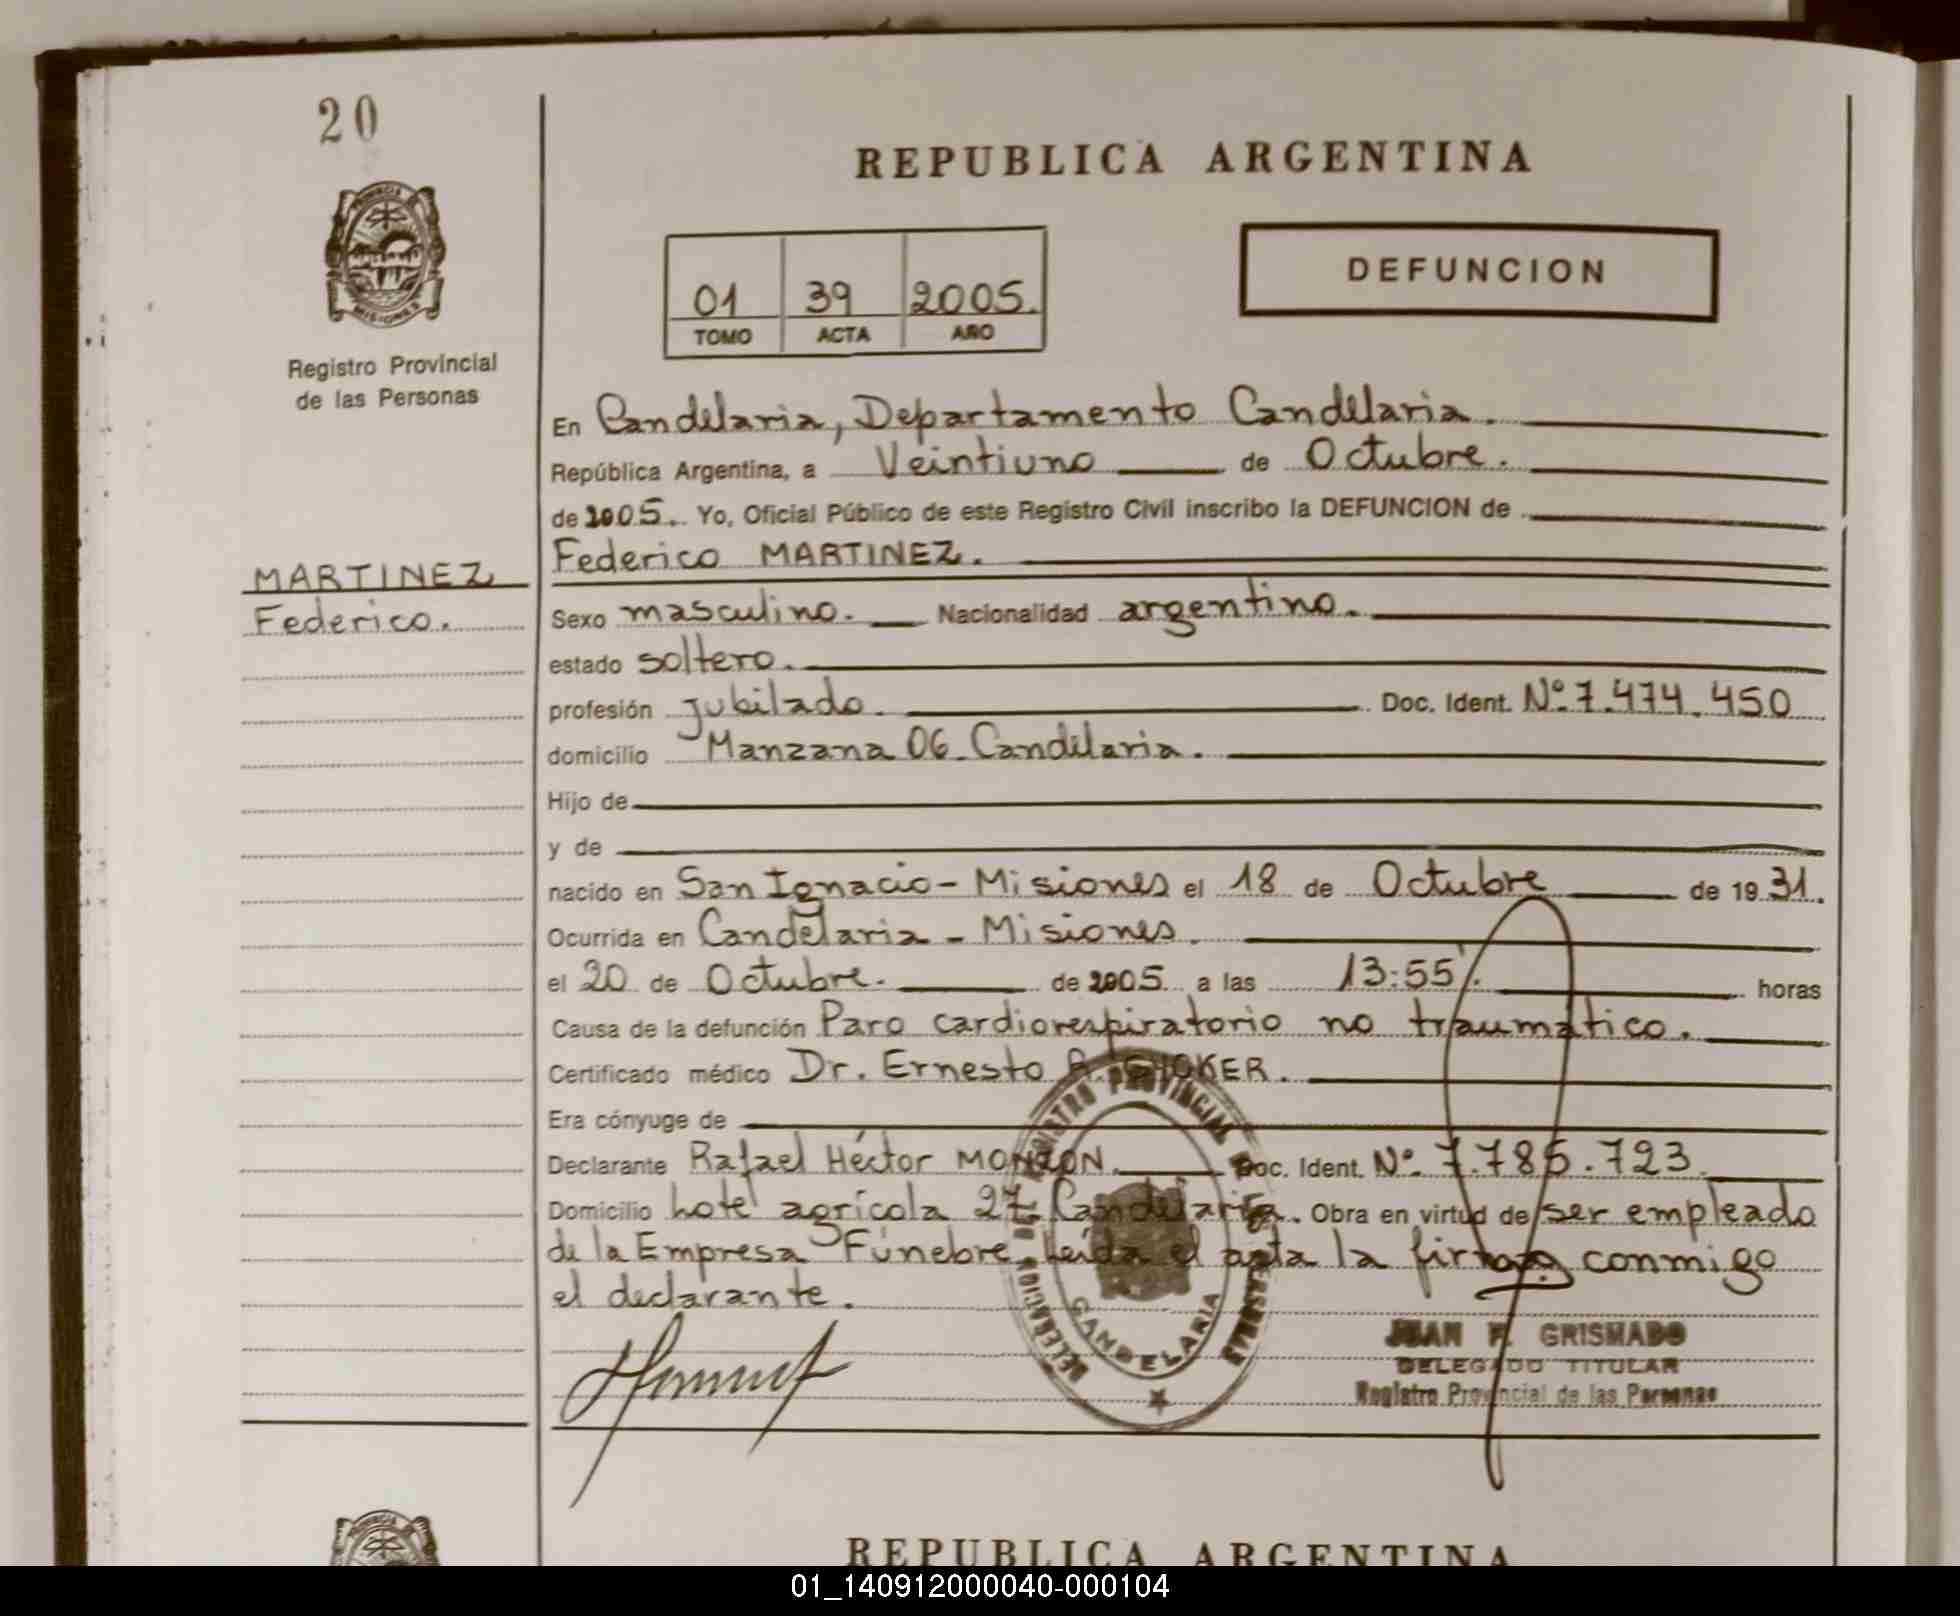 20
REPUBLICA ARGENTINA
PROVINCIA DE
MISIONES
Registro Provincial
de las Personas
01 39 2005.
TOMO ACTA AÑO
DEFUNCION
En Candelaria, Departamento Candelaria.
República Argentina, a Veintiuno de Octubre.
de 2005. Yo, Oficial Público de este Registro Civil inscribo la DEFUNCION de
Federico MARTINEZ.
MARTINEZ
Federico.
Sexo masculino. Nacionalidad argentino.
estado soltero.
profesión jubilado. Doc. Ident. Nº 7.474.450
domicilio Manzana 06_ Candelaria.
Hijo de
y de
nacido en San Ignacio - Misiones el 18 de Octubre de 1931.
Ocurrida en Candelaria - Misiones.
el 20 de Octubre. de 2005 a las 13:55'. horas
Causa de la defunción Paro cardiorespiratorio no traumático.
Certificado médico Dr. Ernesto A.
Era cónyuge de
Declarante Rafael Héctor MONZON. Doc. Ident. Nº 7.785.723
Domicilio lote agrícola 27 Candelaria. Obra en virtud de ser empleado
de la Empresa Fúnebre Leída el acta la firman conmigo
el declarante.
REGISTRO PROVINCIAL DE LAS PERSONAS
DELEGACION
CANDELARIA
JUAN F. GRISMADO
DELEGADO TITULAR
Registro Provincial de las Personas
REPUBLICA ARGENTINA
01_140912000040-000104